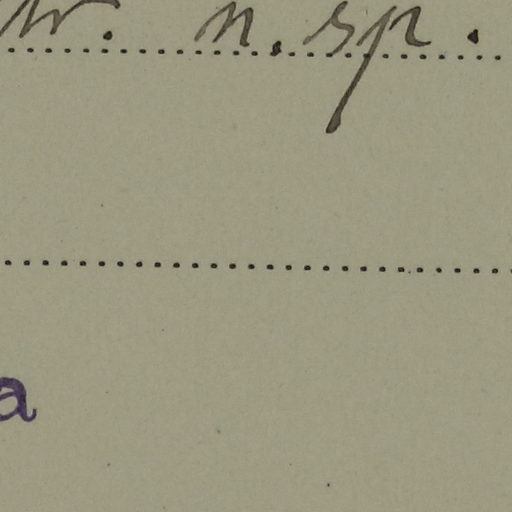 n. sp.
a